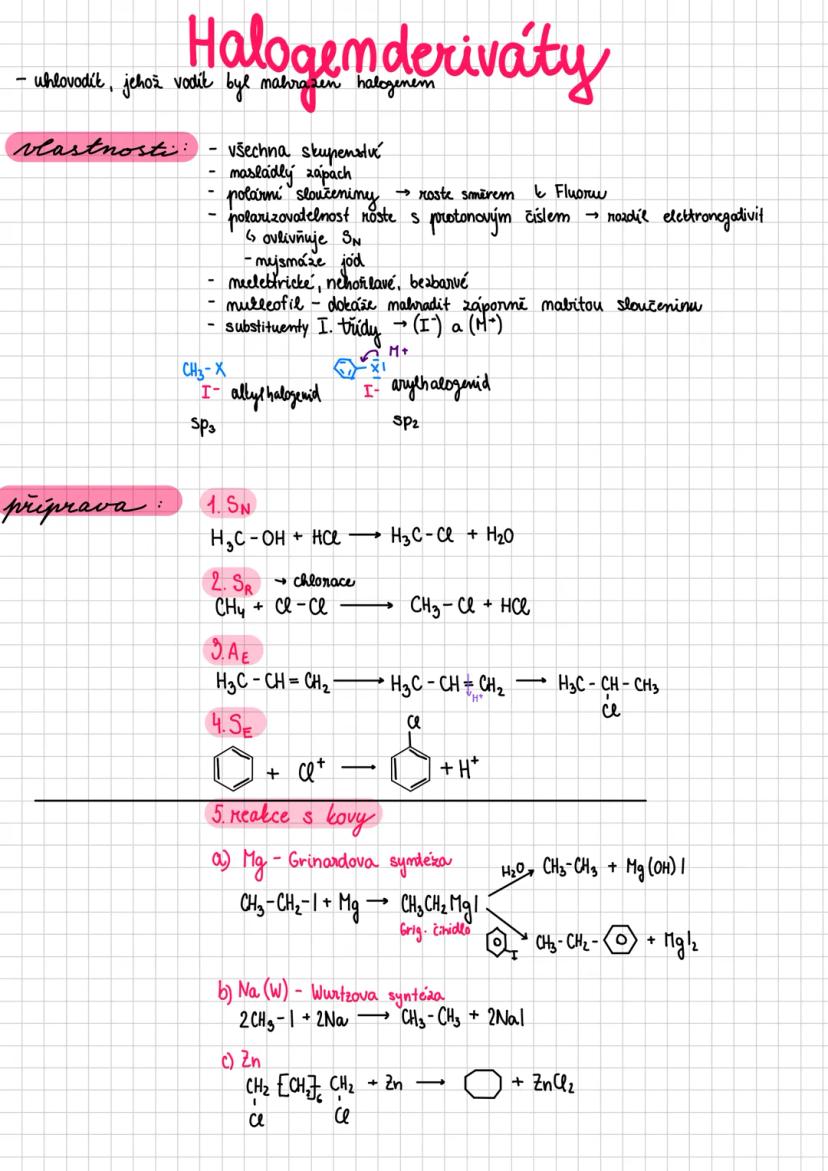 Halogenderiváty
- uhlovodík, jehož vodík byl nahrazen halogenem
vlastnosti:
- všechna skupenství
- nasládlý zápach
- polární sloučeniny → roste směrem k Fluoru
- polarizovatelnost roste s protonovým číslem → rozdíl elektronegativit
↳ ovlivňuje SN
- nejsnáze jód
- neelektrické, nehořlavé, bezbarvé
- nukleofil – dokáže nahradit záporně nabitou sloučeninu
- substituenty I. třídy → (I⁻) a (M⁺)
M+
CH₃-X
X
I- alkylhalogenid
I- arylhalogenid
sp₃
sp₂
příprava:
1. SN
H₃C-OH + HCl → H₃C-Cl + H₂O
2. SR → chlorace
CH₄ + Cl-Cl → CH₃-Cl + HCl
3. AE
H₃C-CH=CH₂ → H₃C-CH=CH₂ → H₃C-CH-CH₃
H⁺
Cl
4. SE
Cl
+ Cl⁺ → + H⁺
5. reakce s kovy
a) Mg - Grinardova syntéza
H₂O CH₃-CH₃ + Mg(OH)I
CH₃-CH₂-I + Mg → CH₃CH₂MgI
Grig. činidlo
I CH₃-CH₂- + MgI₂
b) Na (W) - Wurtzova syntéza
2CH₃-I + 2Na → CH₃-CH₃ + 2NaI
c) Zn
CH₂ [CH₂]₆ CH₂ + Zn → + ZnCl₂
Cl Cl